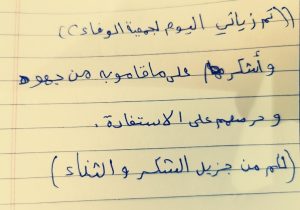 ((تم زيارتي اليوم لجمعية الوفاء))
وأشكرهم على ما قاموا به من جهود
وحرصهم على الاستفادة.
(لكم من جزيل الشكر والثناء)